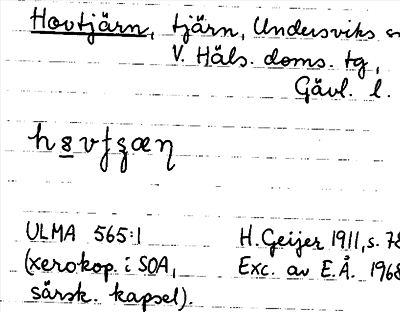 Hovtjärn, tjärn, Undersviks sn
V. Häls. doms. tg,
Gävl. l.
ULMA 565:1
(xerokop. i SOA,
särsk. kapsel).
H. Geijer 1911, s. 78
Exc. av E.Å. 1968